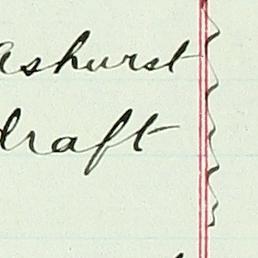 Ashurst
draft